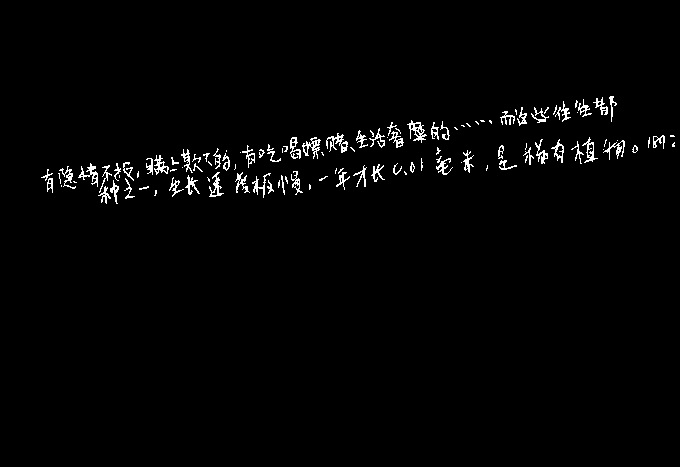 有隐情不报,瞒上欺下的,有吃喝嫖赌、生活奢靡的……而这些往往都
种之一,生长速度极慢,一年才长0.01毫米,是稀有植物。1897: